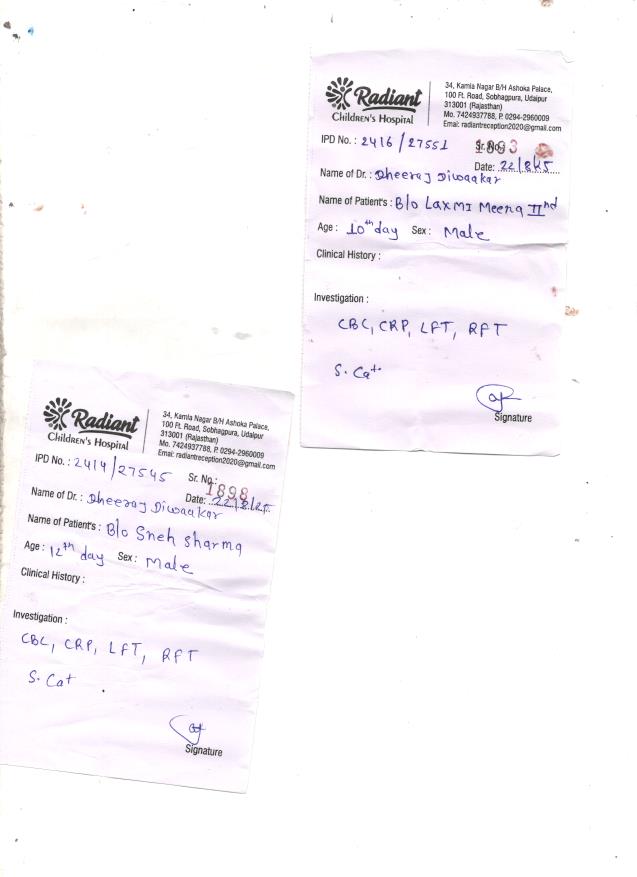 Radiant
Children's Hospital
34, Kamla Nagar B/H Ashoka Palace,
100 Ft. Road, Sobhagpura, Udaipur
313001 (Rajasthan)
Mo. 7424937788, P. 0294-2960009
Emai: radiantreception2020@gmail.com
IPD No. : 2416/27551
Sr. No. 1893
Date: 22/8/25
Name of Dr. : Dheeraj Diwaakar
Name of Patient's : B/o Laxmi Meena IInd
Age : 10th day Sex : Male
Clinical History :
Investigation :
CBC, CRP, LFT, RFT
S. Cat
Signature
Radiant
Children's Hospital
34, Kamla Nagar B/H Ashoka Palace,
100 Ft. Road, Sobhagpura, Udaipur
313001 (Rajasthan)
Mo. 7424937788, P. 0294-2960009
Email: radiantreception2020@gmail.com
IPD No. : 2414/27545
Sr. No.: 1898
Date: 22/8/25
Name of Dr. : Dheeraj Diwaakar
Name of Patient's : B/o Sneh Sharma
Age : 12th day Sex : Male
Clinical History :
Investigation :
CBC, CRP, LFT, RFT
S. Cat
Signature